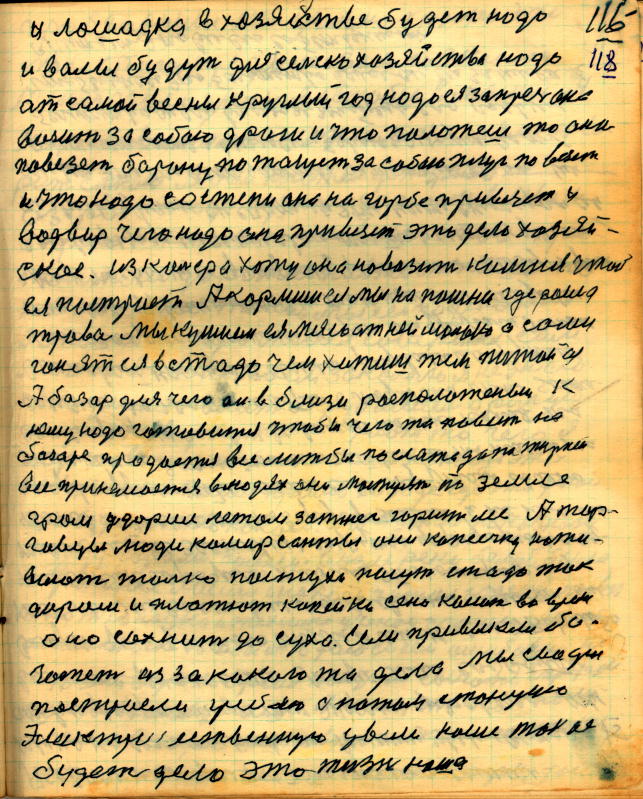 и лошадка в хозяйстве будет надо 116
и валы будут для сельскохозяйства надо 118
ат самой весны круглый год надося запречь она
возит за собаю дроги и что положеш то она
повезет борону потащит за собаю плуг повезет
и что надо состепи она на горбе привезет и
водвор чего надо она привезет это дело хозяй-
ское. из карера хоту она навозит камнив чтоб
ся пастроет А кормимся мы на пашни где росла
трава мы кушаем ся мясо отней молоко а сами
гонятся в стадо чем хотиш тем питайся
А базар для чего он в близи расположеный к
нему надо готовится чтобы чего та повезт на
базаре продается все
все принемается в людях они по земле
гром ударил летом зажег горит лес А тор-
говцы люди камарсанты они копеечку нажи-
вают толко пастухи пасут стадо так
дароги и платют копейки сена косют во время
оно сохнит до суха. Если привыкли
из за какого та дела Мы свади
построели греблю а потом станцыю
увели наше такое
будет дело это жизнь наша